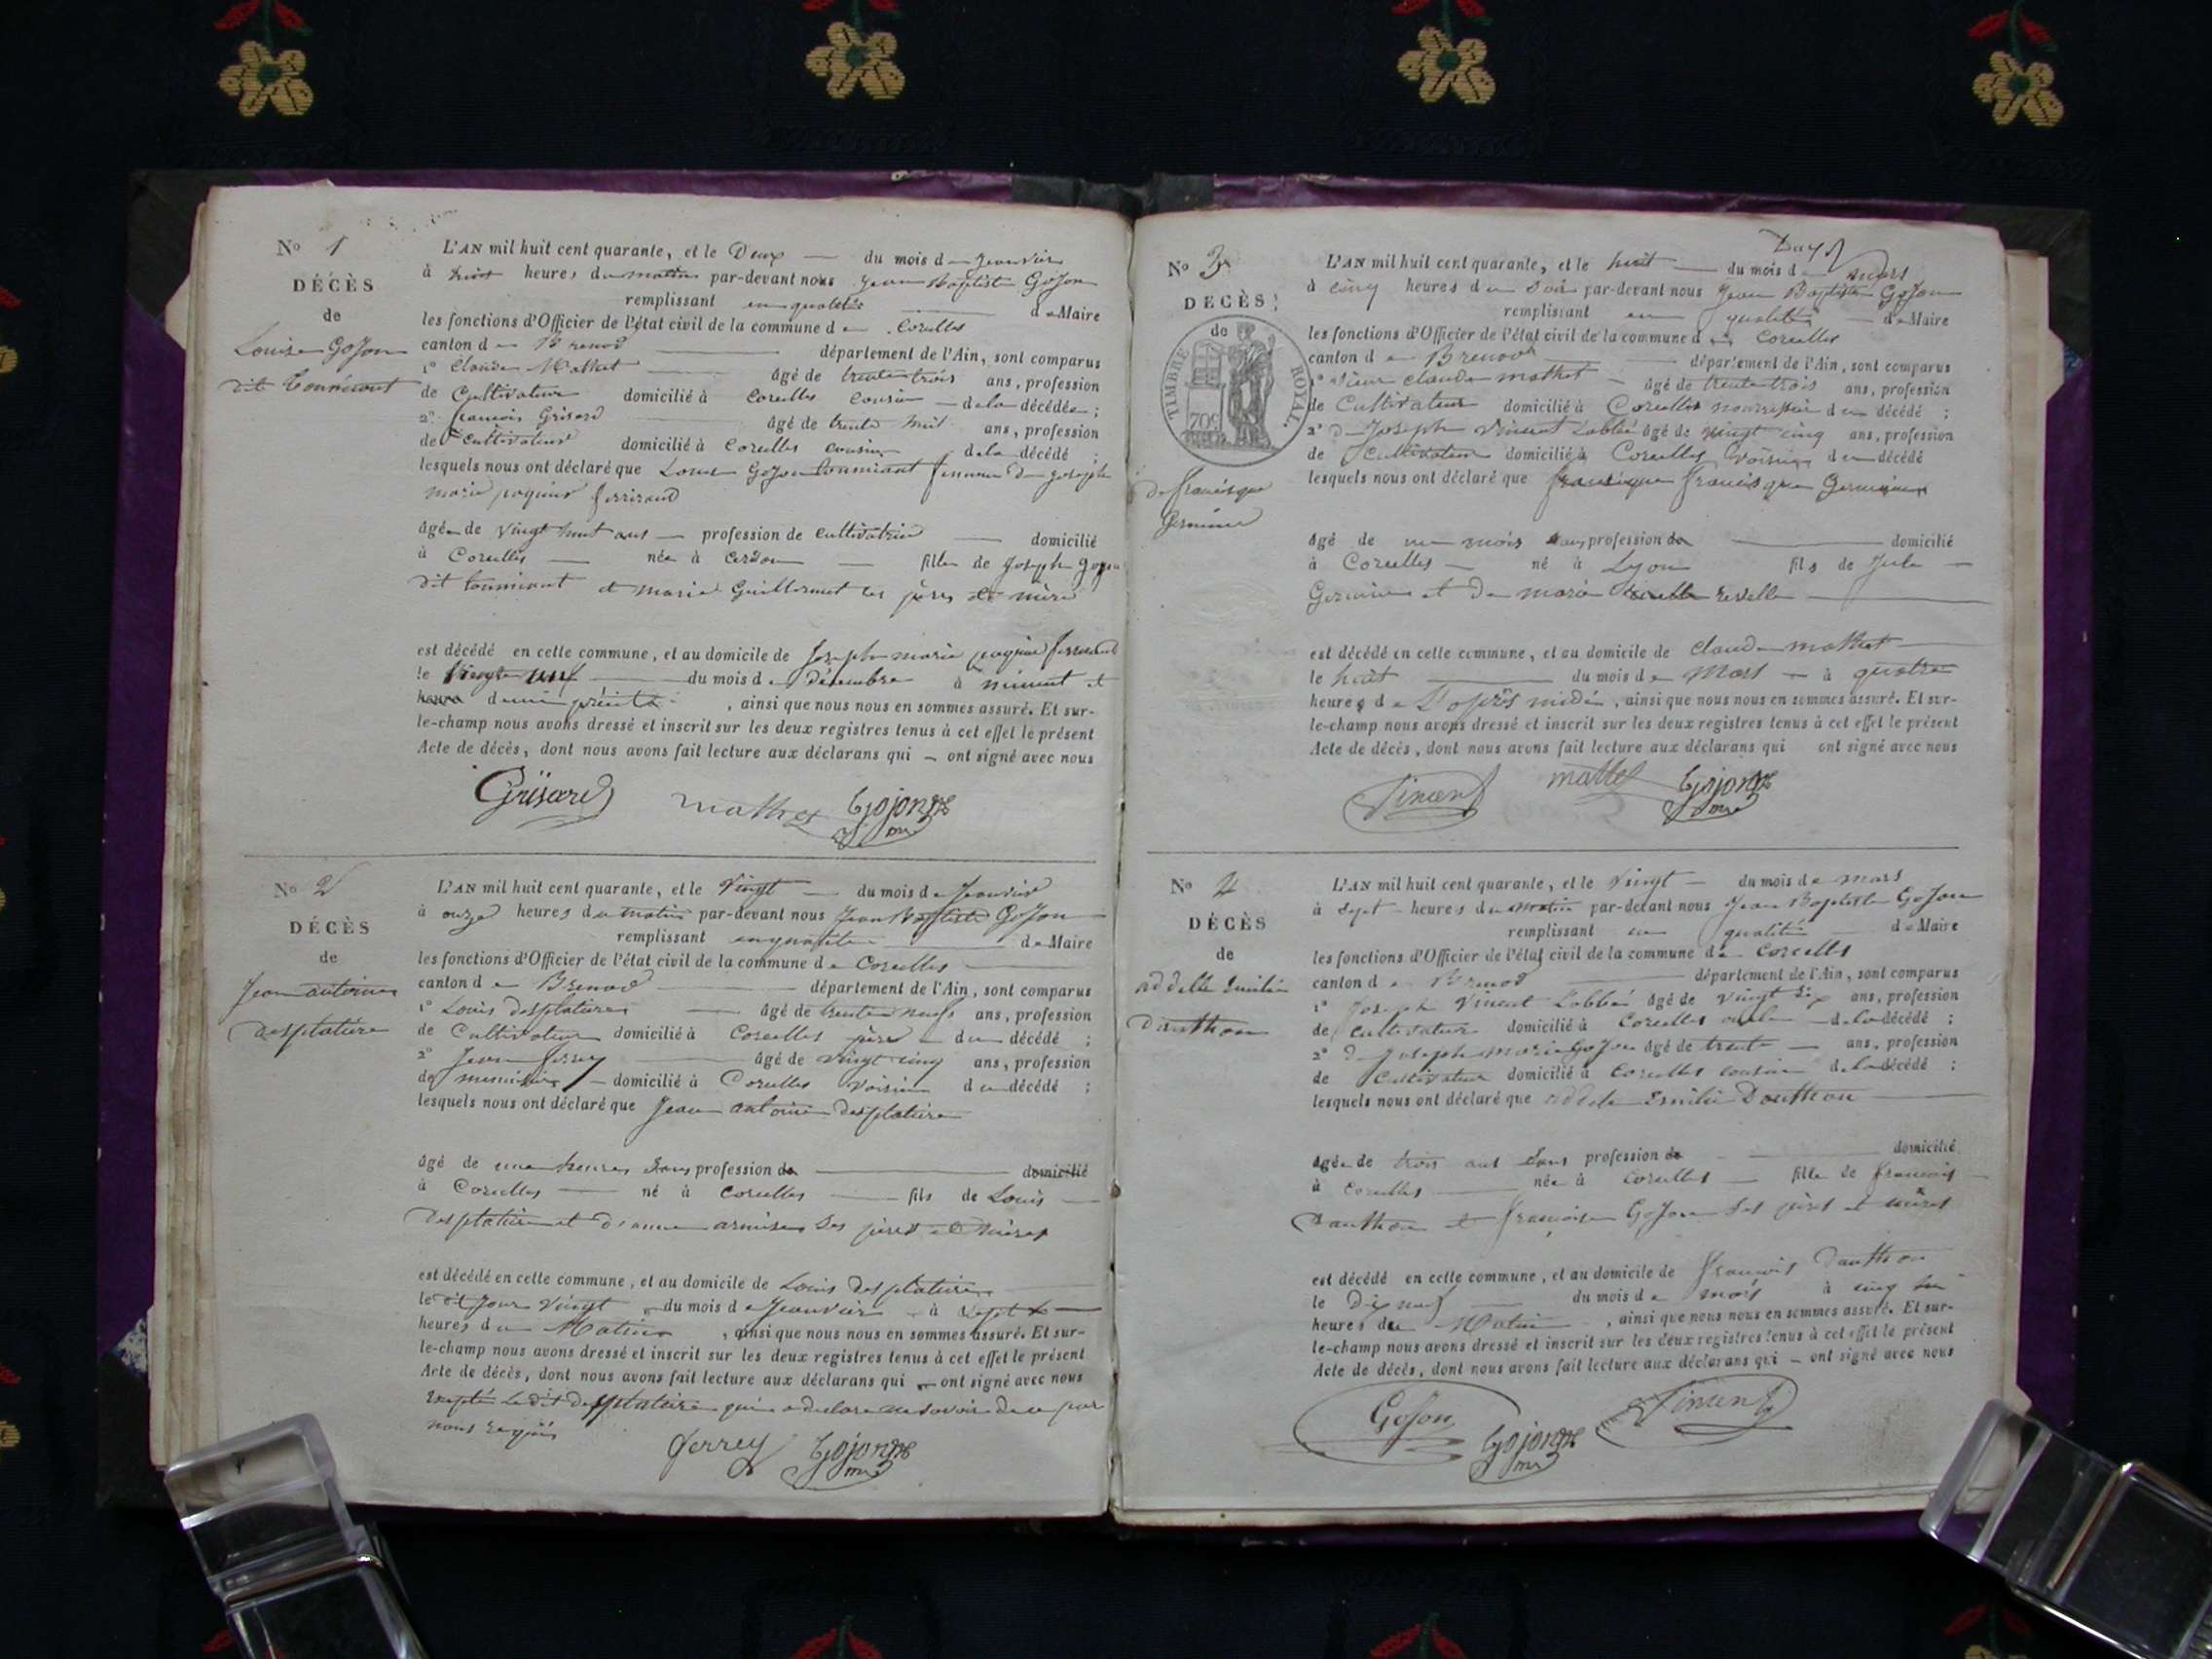 No 1
DÉCÈS
de
Louise Gojon
dit Tonniont
L'AN mil huit cent quarante, et le Deux du mois de Janvier
à huit heures du matin par-devant nous Jean Baptiste Gojon
remplissant en qualité de Maire
les fonctions d'Officier de l'état civil de la commune de Corcelles
canton de Brenod département de l'Ain, sont comparus
1º Claude Mathet âgé de trente trois ans, profession
de Cultivateur domicilié à Corcelles cousin de la décédée ;
2º françois Grisard âgé de trente huit ans, profession
de Cultivateur domicilié à Corcelles cousin de la décédé ;
lesquels nous ont déclaré que Louise Gojon femme de joseph
marie
âgée de vingt huit ans profession de cultivatrice domicilié
à Corcelles née à Cerdon fille de Joseph Gojon
dit et marie Guillermet ses pères et mère
est décédé en cette commune, et au domicile de Joseph marie
le Vingt neuf du mois de Décembre à minuit et
heure demi , ainsi que nous nous en sommes assuré. Et sur-
le-champ nous avons dressé et inscrit sur les deux registres tenus à cet effet le présent
Acte de décès, dont nous avons fait lecture aux déclarans qui ont signé avec nous
Grisard mathet Gojon
No 2
DÉCÈS
de
Jean antoine
desplature
L'AN mil huit cent quarante, et le Vingt du mois de Janvier
à onze heures du matin par-devant nous Jean Baptiste Gojon
remplissant en qualité de Maire
les fonctions d'Officier de l'état civil de la commune de Corcelles
canton de Brenod département de l'Ain, sont comparus
1º Louis desplature âgé de trente neuf ans, profession
de Cultivateur domicilié à Corcelles père du décédé ;
2º Jean ferrey âgé de vingt cinq ans, profession
de menuisier domicilié à Corcelles voisin du décédé ;
lesquels nous ont déclaré que Jean antoine desplature
âgé de une heure sans profession de domicilié
à Corcelles né à Corcelles fils de Louis
desplature et d'anne ses pères et mères
est décédé en cette commune, et au domicile de Louis desplature
le dit jour vingt du mois de Janvier à sept
heures du Matin , ainsi que nous nous en sommes assuré. Et sur-
le-champ nous avons dressé et inscrit sur les deux registres tenus à cet effet le présent
Acte de décès, dont nous avons fait lecture aux déclarans qui ont signé avec nous
excepté le dit desplature qui a declaré ne savoir de ce par
nous requis
ferrey Gojon
No 3
DÉCÈS
de
TIMBRE ROYAL.
70c
de francisque
Germain
L'AN mil huit cent quarante, et le huit du mois de mars
à cinq heures du soir par-devant nous Jean Baptiste Gojon
remplissant en qualité de Maire
les fonctions d'Officier de l'état civil de la commune de Corcelles
canton de Brenod département de l'Ain, sont comparus
1º sieur claude mathet âgé de trente trois ans, profession
de Cultivateur domicilié à Corcelles nourrissier du décédé ;
2º de Joseph Vincent Labbé âgé de vingt cinq ans, profession
de Cultivateur domicilié à Corcelles voisin du décédé
lesquels nous ont déclaré que francisque Germain
âgé de un mois sans profession de domicilié
à Corcelles né à Lyon fils de Jule
Germain et de marie revelle
est décédé en cette commune, et au domicile de claude mathet
le huit du mois de Mars à quatre
heures de L'après midi , ainsi que nous nous en sommes assuré. Et sur-
le-champ nous avons dressé et inscrit sur les deux registres tenus à cet effet le présent
Acte de décès, dont nous avons fait lecture aux déclarans qui ont signé avec nous
Vincent mathet Gojon
No 4
DÉCÈS
de
addelle Emilie
Dauthon
L'AN mil huit cent quarante, et le Vingt du mois de mars
à sept heures du matin par-devant nous Jean Baptiste Gojon
remplissant en qualité de Maire
les fonctions d'Officier de l'état civil de la commune de Corcelles
canton de Brenod département de l'Ain, sont comparus
1º Joseph Vincent Labbé âgé de vingt six ans, profession
de Cultivateur domicilié à Corcelles oncle de la décédé ;
2º de Joseph marie Gojon âgé de trente ans, profession
de Cultivateur domicilié à Corcelles cousin de la décédé ;
lesquels nous ont déclaré que addele Emilie Dauthon
âgée de trois ans sans profession de domicilié
à Corcelles née à Corcelles fille de francois
Dauthon et françoise Gojon ses pères et mères
est décédé en cette commune, et au domicile de francois Dauthon
le Dix neuf du mois de mars à cinq
heures du Matin , ainsi que nous nous en sommes assuré. Et sur-
le-champ nous avons dressé et inscrit sur les deux registres tenus à cet effet le présent
Acte de décès, dont nous avons fait lecture aux déclarans qui ont signé avec nous
Gojon Gojon Vincent